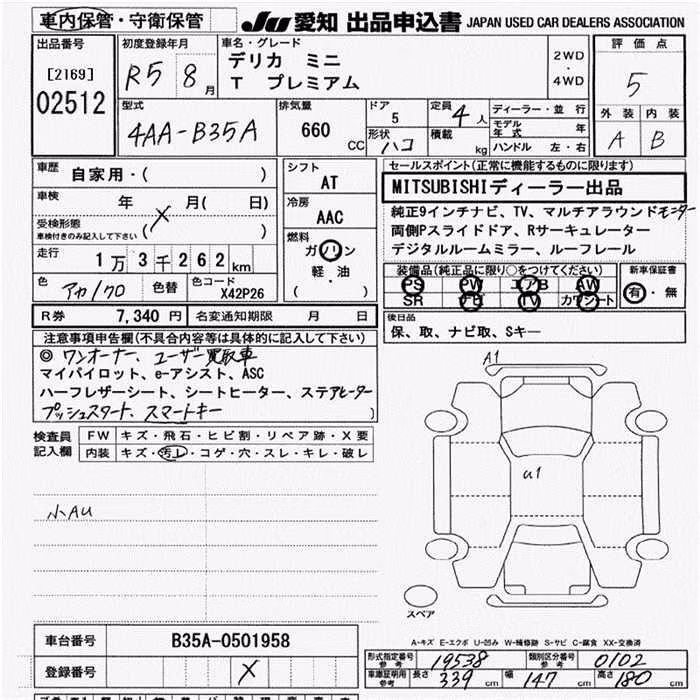 車内保管・守衛保管
JU 愛知 出品申込書 JAPAN USED CAR DEALERS ASSOCIATION
出品番号
[2169]
02512
初度登録年月
R5 8月
車名・グレード
デリカ ミニ
T プレミアム
2WD
・
4WD
評価点
5
外装 内装
A B
型式
4AA-B35A
排気量
660 CC
ドア
5
形状
ハコ
定員
4人
積載
kg
ディーラー・並行
モデル年式 年
ハンドル 左・右
車歴
自家用・( )
車検
年 月( 日)
受検形態
車検付きのみ記入して下さい ( X )
走行
1万3千262km
色
アカ/クロ
色替
色コード
X42P26
シフト
AT
冷房
AAC
燃料
ガソリン
軽・油
( )
セールスポイント(正常に機能するものに限ります)
MITSUBISHIディーラー出品
純正9インチナビ、TV、マルチアラウンドモニター
両側Pスライドドア、Rサーキュレーター
デジタルルームミラー、ルーフレール
装備品(純正品に限り○をつけてください)
PS PW エアB AW
SR ナビ TV カワシート
新車保証書
有・無
R券 7,340円
名変通知期限 月 日
後日品
保、取、ナビ取、Sキー
注意事項申告欄(不具合内容等は具体的に記入して下さい)
◎ワンオーナー、ユーザー買取車
マイパイロット、e-アシスト、ASC
ハーフレザーシート、シートヒーター、ステアヒーター
プッシュスタート、スマートキー )
検査員記入欄
FW キズ・飛石・ヒビ割・リペア跡・X要
内装 キズ・汚レ・コゲ・穴・スレ・キレ・破レ
小AU
A1
U1
スペア
A-キズ E-エクボ U-凹み W-補修跡 S-サビ C-腐食 XX-交換済
車台番号
B35A-0501958
登録番号
X
形式指定番号参考
19538
類別区分番号参考
0102
車庫証明用参考 長さ 339cm 幅 147cm 高さ 180cm